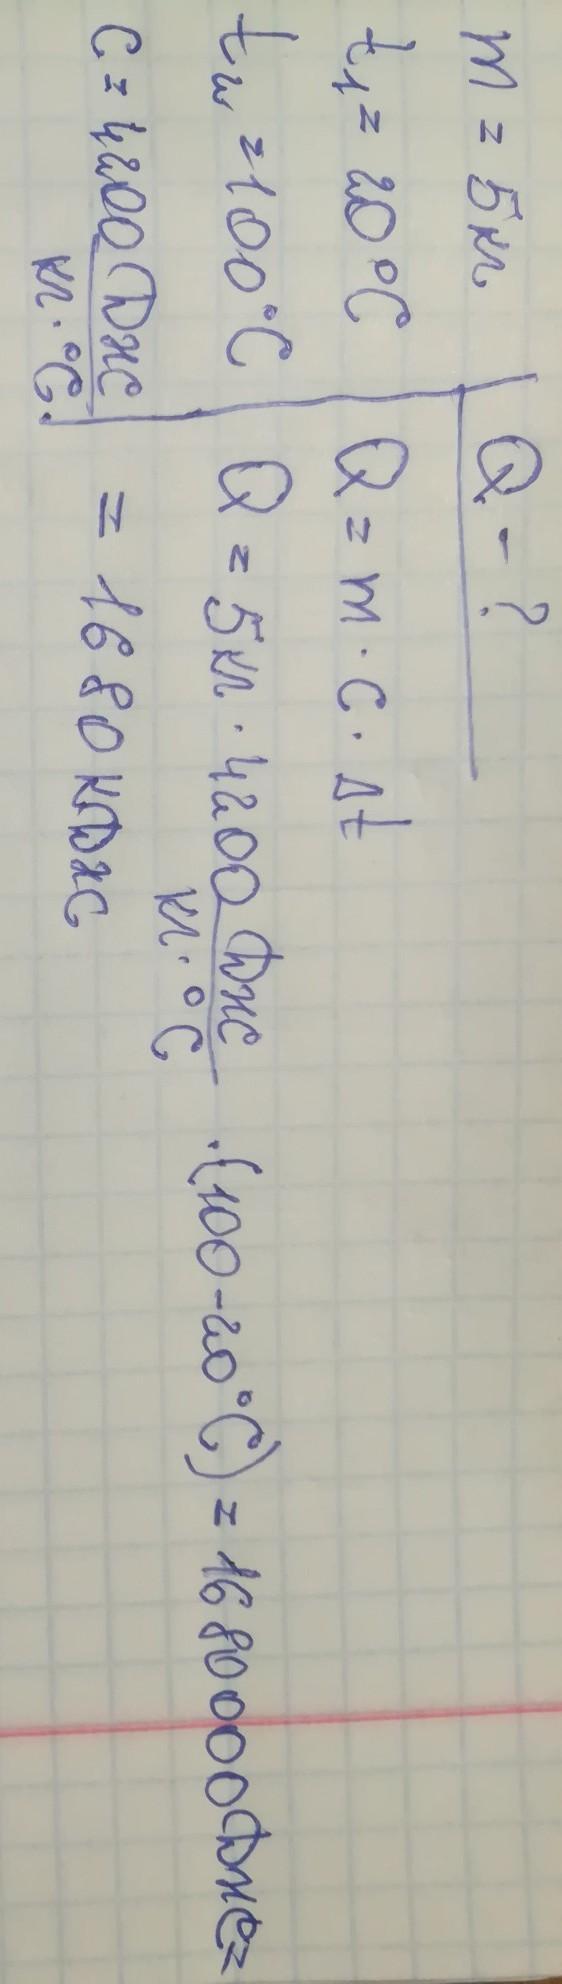 m = 5 кг
t₁ = 20 °C
t₂ = 100 °C
c = 4200 Дж
кг · °C.
Q - ?
Q = m · c · Δt
Q = 5 кг · 4200 Дж/кг · °C · (100 - 20 °C) = 1680000 Дж =
= 1680 кДж